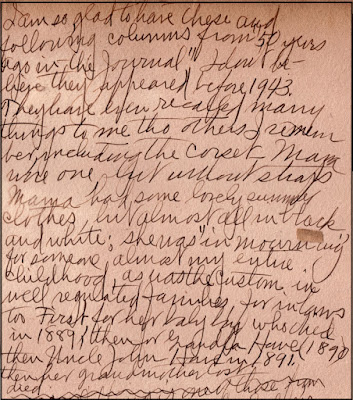 I am so glad to have these and
following columns from 50 years
ago in the Journal" I don't be-
lieve they appeared before 1943.
They have even recalled many
things to me tho others I remem
ber, including the corset. Mama
wore one but without straps
Mama had some lovely summer
clothes but almost all in black
and white; she was "in mourning"
for someone almost my entire
childhood as was the custom in
well regulated families for in-laws
too First for her baby boy who died
in 1889, then for Grandpa Howe (1890
then Uncle John Ham in 1891.
then her grandmother
died